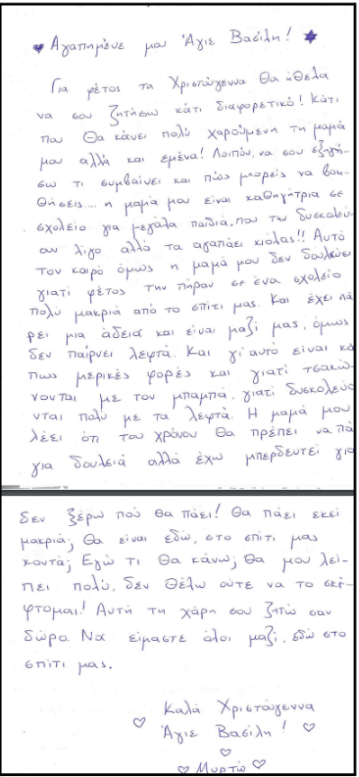 Αγαπημένε μου Άγιε Βασίλη!
Για φέτος τα Χριστούγεννα θα ήθελα
να σου ζητήσω κάτι διαφορετικό! Κάτι
που θα κάνει πολύ χαρούμενη τη μαμά
μου αλλά και εμένα! Λοιπόν, να σου εξηγή-
σω τι συμβαίνει και πώς μπορείς να βοη-
θήσεις... η μαμά μου είναι καθηγήτρια σε
σχολείο για μεγάλα παιδιά, που την δυσκολεύ-
ουν λίγο αλλά τα αγαπάει κιόλας!! Αυτό
τον καιρό όμως η μαμά μου δεν δουλεύει
γιατί φέτος την πήραν σε ένα σχολείο
πολύ μακριά από το σπίτι μας. Και έχει πά
ρει μια άδεια και είναι μαζί μας, όμως
δεν παίρνει λεφτά. Και γι'αυτό είναι κά
πως μερικές φορές και γιατί τσακώ
νονται με τον μπαμπά, γιατί δυσκολεύο
νται πολύ με τα λεφτά. Η μαμά μου
λέει ότι του χρόνου θα πρέπει να πά
για δουλειά αλλά έχω μπερδευτεί για
δεν ξέρω πού θα πάει! Θα πάει εκεί
μακριά; Θα είναι εδώ, στο σπίτι μας
κοντά; Εγώ τι θα κάνω; θα μου λεί-
πει πολύ, δεν θέλω ούτε να το σκέ-
φτομαι! Αυτή τη χάρη σου ζητώ σαν
δώρο. Να είμαστε όλοι μαζί, εδώ στο
σπίτι μας.
Καλά Χριστούγεννα
Άγιε Βασίλη!
Μυρτώ